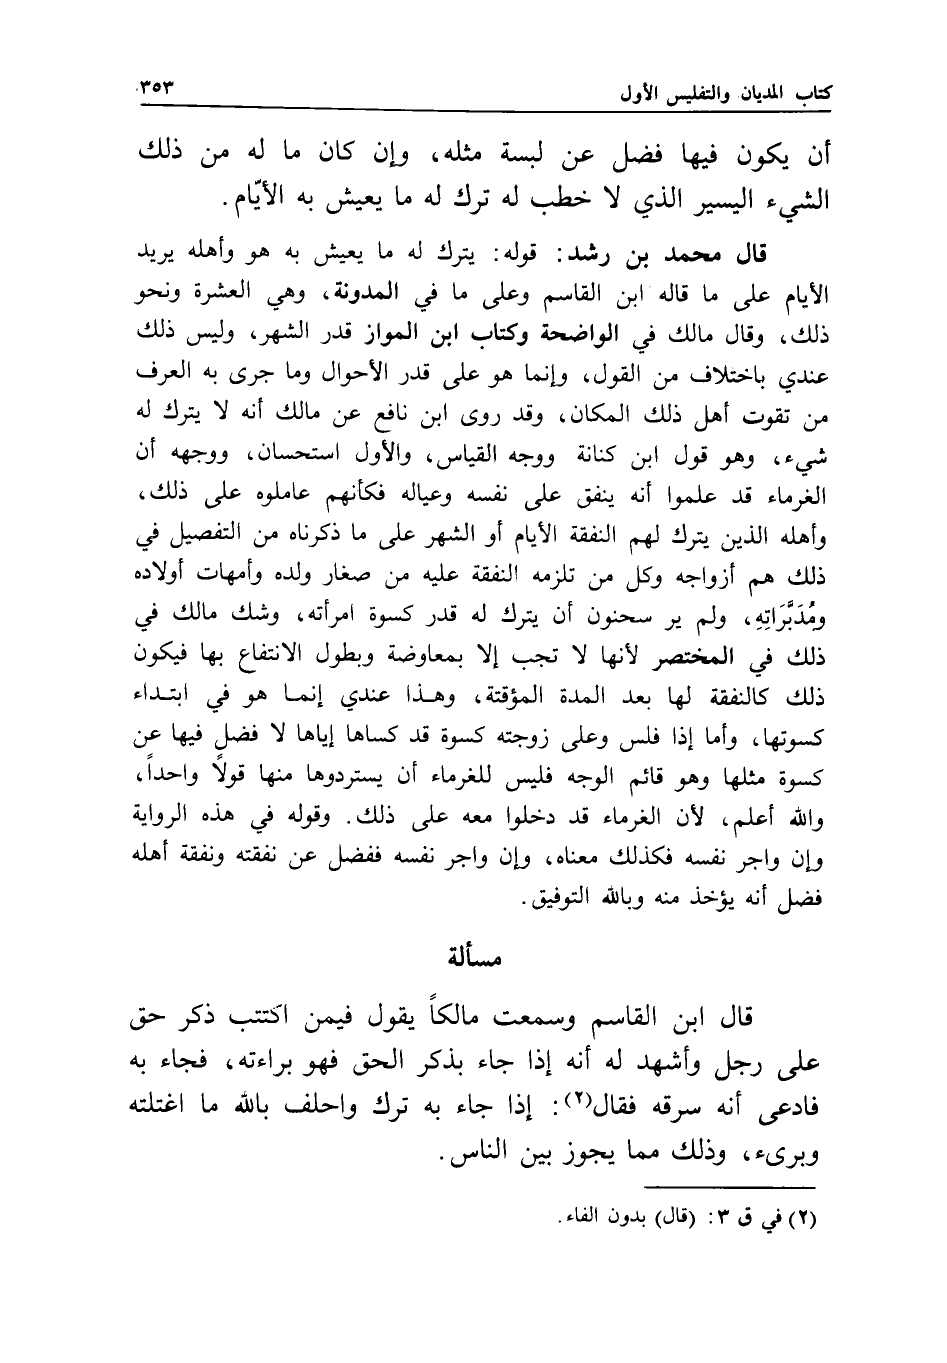 كتاب المديان والتفليس الأول ٣٥٣
أن يكون فيها فضل عن لبسة مثله، وإن كان ما له من ذلك
الشيء اليسير الذي لا خطب له ترك له ما يعيش به الأيّام.
قال محمد بن رشد: قوله: يترك له ما يعيش به هو وأهله يريد
الأيام على ما قاله ابن القاسم وعلى ما في المدونة، وهي العشرة ونحو
ذلك، وقال مالك في الواضحة وكتاب ابن المواز قدر الشهر، وليس ذلك
عندي باختلاف من القول، وإنما هو على قدر الأحوال وما جرى به العرف
من تقوت أهل ذلك المكان، وقد روى ابن نافع عن مالك أنه لا يترك له
شيء، وهو قول ابن كنانة ووجه القياس، والأول استحسان، ووجهه أن
الغرماء قد علموا أنه ينفق على نفسه وعياله فكأنهم عاملوه على ذلك،
وأهله الذين يترك لهم النفقة الأيام أو الشهر على ما ذكرناه من التفصيل في
ذلك هم أزواجه وكل من تلزمه النفقة عليه من صغار ولده وأمهات أولاده
ومُدَبَّرَاتِهِ، ولم ير سحنون أن يترك له قدر كسوة امرأته، وشك مالك في
ذلك في المختصر لأنها لا تجب إلا بمعاوضة وبطول الانتفاع بها فيكون
ذلك كالنفقة لها بعد المدة المؤقتة، وهذا عندي إنما هو في ابتداء
كسوتها، وأما إذا فلس وعلى زوجته كسوة قد كساها إياها لا فضل فيها عن
كسوة مثلها وهو قائم الوجه فليس للغرماء أن يستردوها منها قولاً واحداً،
والله أعلم، لأن الغرماء قد دخلوا معه على ذلك. وقوله في هذه الرواية
وإن واجر نفسه فكذلك معناه، وإن واجر نفسه ففضل عن نفقته ونفقة أهله
فضل أنه يؤخذ منه وبالله التوفيق.
مسألة
قال ابن القاسم وسمعت مالكاً يقول فيمن اكتتب ذكر حق
على رجل وأشهد له أنه إذا جاء بذكر الحق فهو براءته، فجاء به
فادعى أنه سرقه فقال(٢): إذا جاء به ترك واحلف بالله ما اغتلته
وبرىء، وذلك مما يجوز بين الناس.
(٢) في ق ٣: (قال) بدون الفاء.